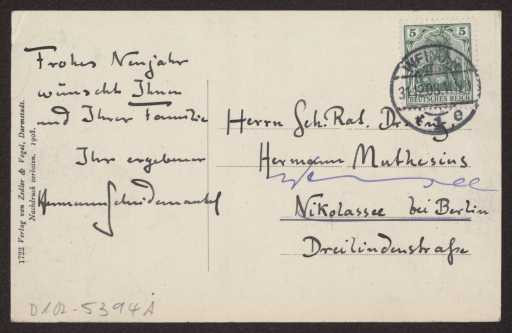 Frohes Neujahr
wünscht Ihnen
und Ihrer Familie
Ihr ergebener
Hermann Scheidemantel
Herrn Geh. Rat. Dr. Ing.
Hermann Muthesius
Nikolassee bei Berlin
Dreilindenstraße
5 5
DEUTSCHES REICH
WEIMAR
1722 Verlag von Zedler & Vogel, Darmstadt.
Nachdruck verboten. 1908.
D102-5394A